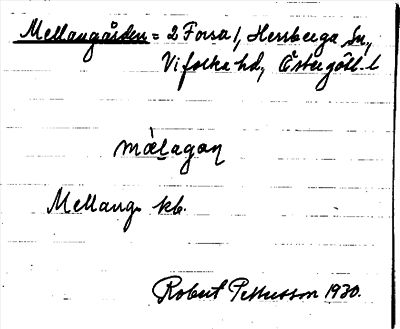 Mellangården = 2 Forsa 1, Herrberga Sn,
Vifolka hd, Östergötl. l
mæ̀lagaɳ
Mellang. kb.
Robert Pettersson 1930.